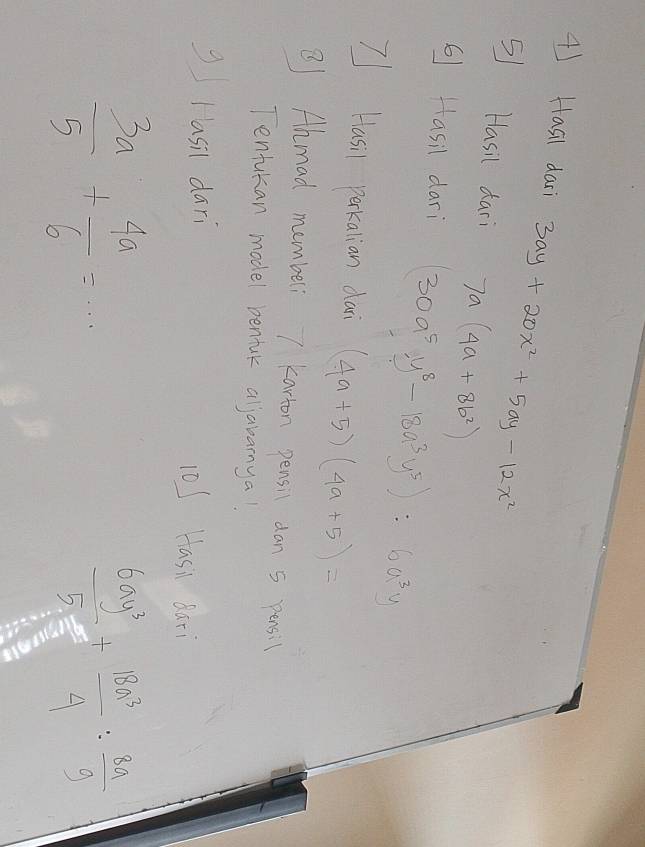 4] Hasil dari 3ay + 20x² + 5ay - 12x²
5] Hasil dari 7a (4a + 8b²)
6] Hasil dari (30a⁵y⁸ - 18a³y⁵) : 6a³y
7] Hasil perkalian dari (4a+5)(4a+5) =
8] Ahmad membeli 7 karton pensil dan 5 pensil
Tentukan model bentuk aljabarnya!
9] Hasil dari
3a/5 + 4a/6 = ...
10] Hasil dari
6ay³/5 + 18a³/4 : 8a/9